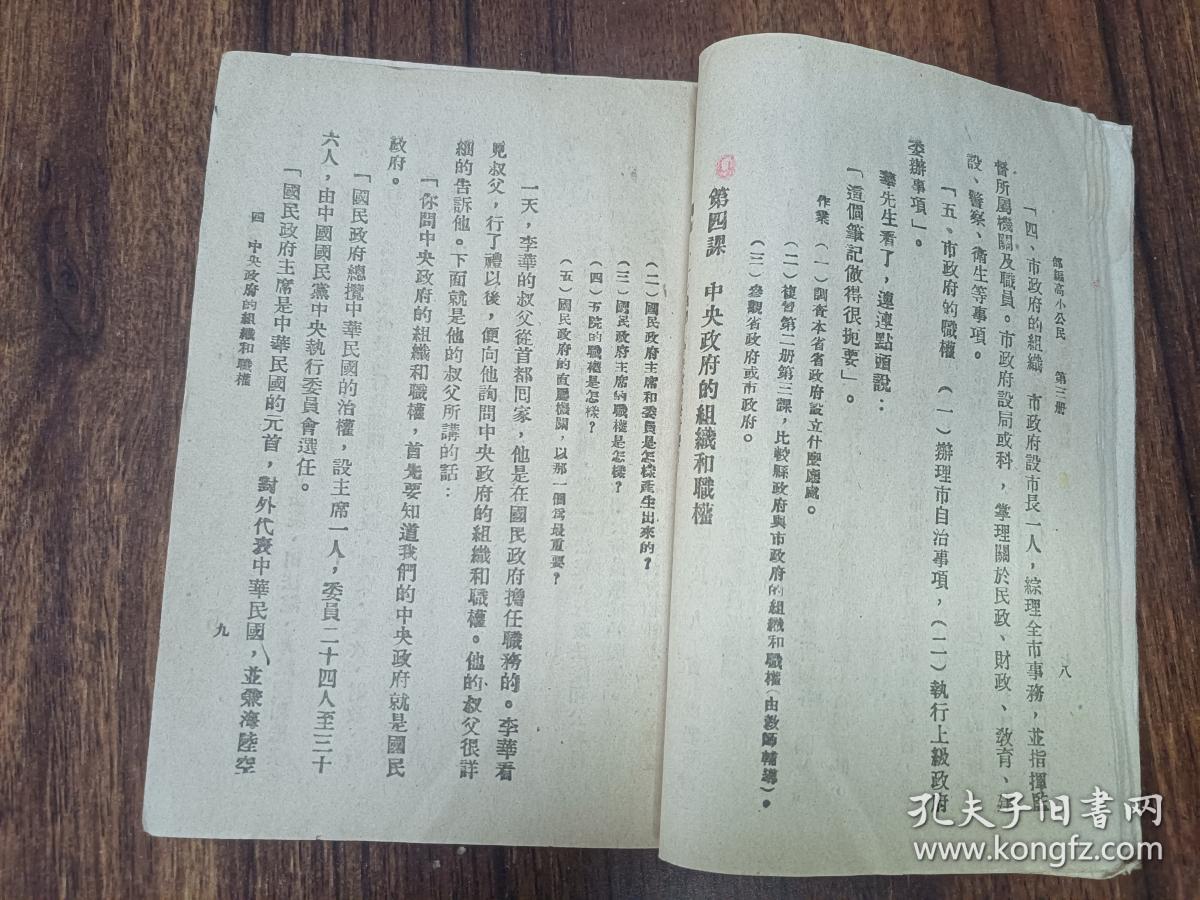 部編高小公民　第三册
八
「四、市政府的組織　市政府設市長一人，綜理全市事務，並指揮監
督所屬機關及職員。市政府設局或科，掌理關於民政、財政、教育、建
設、警察、衛生等事項。
「五、市政府的職權　（一）辦理市自治事項，（二）執行上級政府
委辦事項」。
華先生看了，連連點頭說：
「這個筆記做得很扼要」。
作業　（一）調查本省省政府設立什麼廳處。
（二）複習第二册第三課，比較縣政府與市政府的組織和職權（由教師輔導）。
（三）參觀省政府或市政府。
第四課　中央政府的組織和職權
（二）國民政府主席和委員是怎樣產生出來的？
（三）國民政府主席的職權是怎樣？
（四）五院的職權是怎樣？
（五）國民政府的直屬機關，以那一個爲最重要？
一天，李華的叔父從首都囘家，他是在國民政府擔任職務的。李華看
見叔父，行了禮以後，便向他詢問中央政府的組織和職權。他的叔父很詳
細的告訴他。下面就是他的叔父所講的話：
「你問中央政府的組織和職權，首先要知道我們的中央政府就是國民
政府。
「國民政府總攬中華民國的治權，設主席一人，委員二十四人至三十
六人，由中國國民黨中央執行委員會選任。
「國民政府主席是中華民國的元首，對外代表中華民國，並兼海陸空
四　中央政府的組織和職權
九
孔夫子旧书网
www.kongfz.com